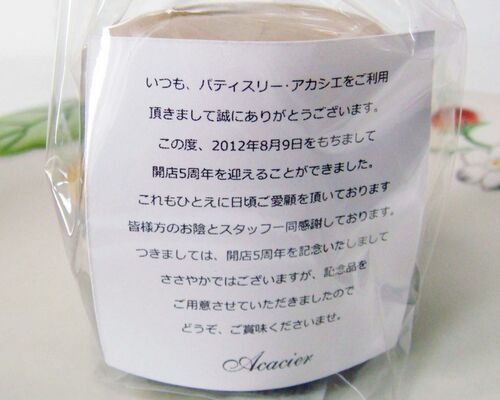 いつも、パティスリー・アカシエをご利用
頂きまして誠にありがとうございます。
この度、2012年8月9日をもちまして
開店5周年を迎えることができました。
これもひとえに日頃ご愛顧を頂いております
皆様方のお陰とスタッフ一同感謝しております。
つきましては、開店5周年を記念いたしまして
ささやかではございますが、記念品を
ご用意させていただきましたので
どうぞ、ご賞味くださいませ。
Acacier